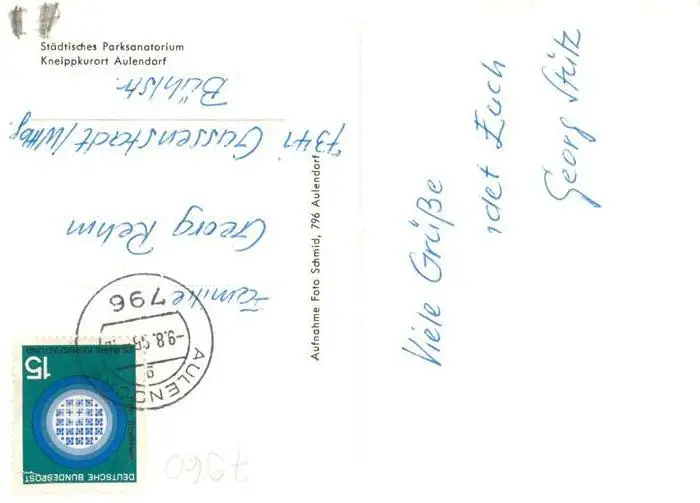 Städtisches Parksanatorium
Kneippkurort Aulendorf
Viele Grüße
Euch
Georg Stütz
Aufnahme Foto Schmid, 796 Aulendorf
Familie
Georg Rehm
7341 Gussenstadt/Wttbg.
Bühlstr.
796
-9.8.
AULENDORF
15
25 JAHRE KERNSPALTUNG
DEUTSCHE BUNDESPOST
7960